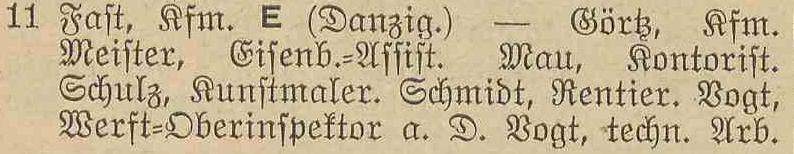 11 Faſt, Kfm. E (Danzig.) — Görtz, Kfm.
Meiſter, Eiſenb.=Aſſiſt. Mau, Kontoriſt.
Schulz, Kunſtmaler. Schmidt, Rentier. Vogt,
Werft=Oberinſpektor a. D. Vogt, techn. Arb.